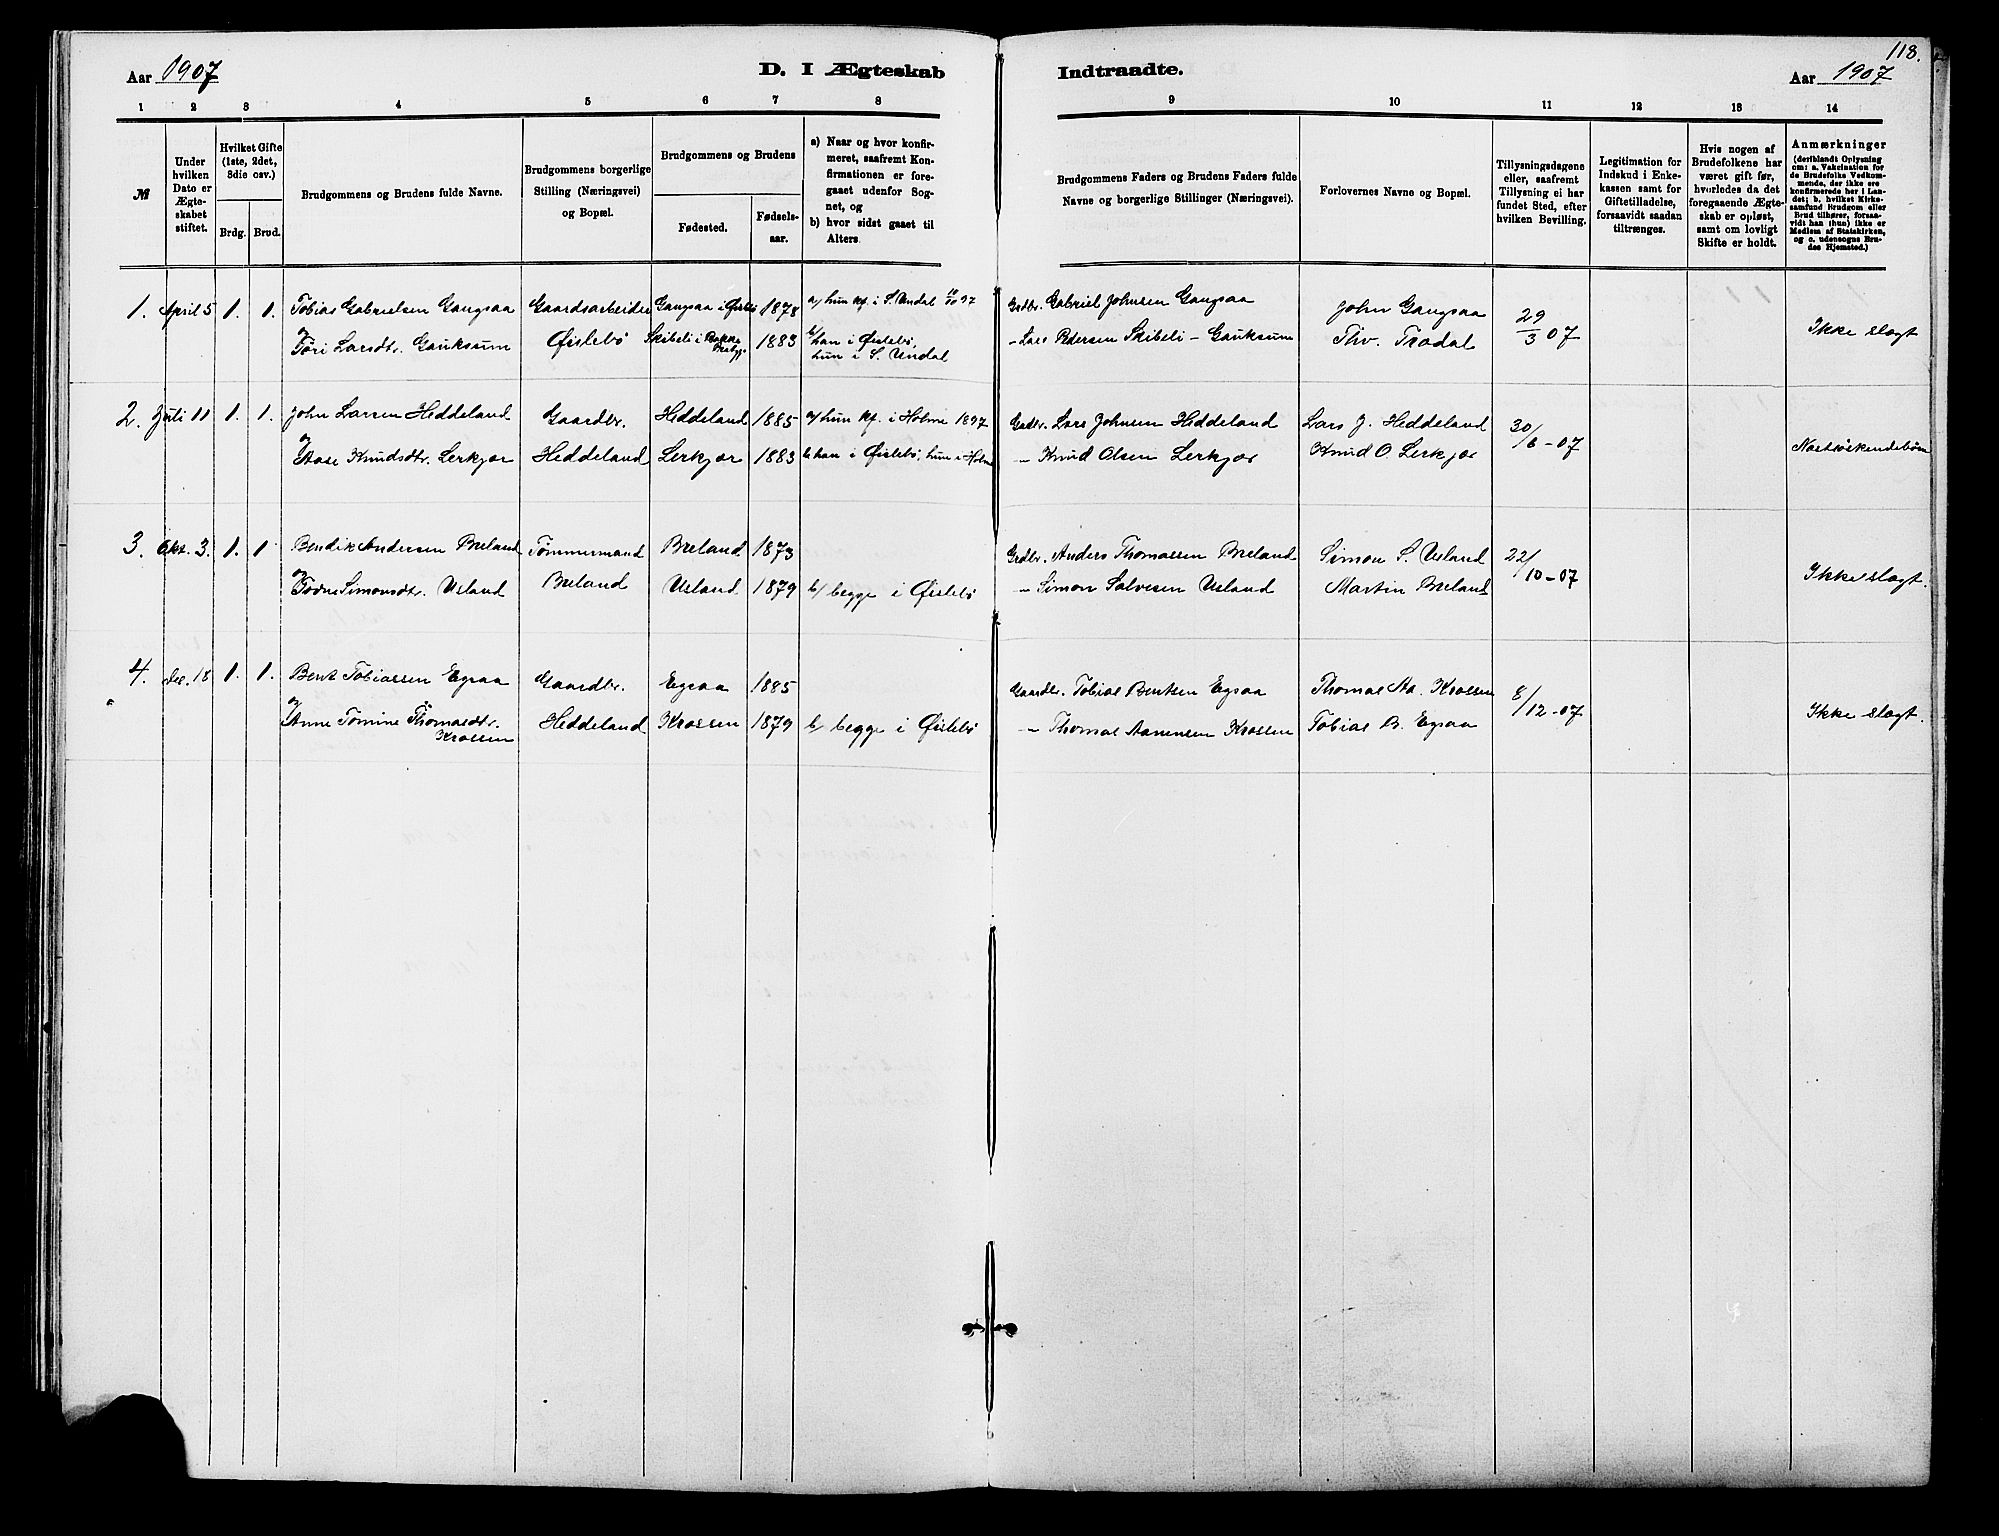 118.
Aar 1907
D. I Ægteskab Indtraadte.
Aar 1907
1 2 3 4 5 6 7 8 9 10 11 12 13 14
№
Under hvilken Dato er Ægteskabet stiftet.
Hvilket Gifte (1ste, 2det, 3die osv.)
Brdg. Brud.
Brudgommens og Brudens fulde Navne.
Brudgommens borgerlige Stilling (Næringsvei) og Bopæl.
Brudgommens og Brudens
Fødested.
Fødselsaar.
a) Naar og hvor konfirmeret, saafremt Konfirmationen er foregaaet udenfor Sognet, og
b) hvor sidst gaaet til Alters.
Brudgommens Faders og Brudens Faders fulde Navne og borgerlige Stillinger (Næringsvei).
Forlovernes Navne og Bopæl.
Tillysningsdagene eller, saafremt Tillysning ei har fundet Sted, efter hvilken Bevilling.
Legitimation for Indskud i Enkekassen samt for Giftetilladelse, forsaavidt saadan tiltrænges.
Hvis nogen af Brudefolkene har været gift før, hvorledes da det foregaaende Ægteskab er opløst, samt om lovligt Skifte er holdt.
Anmærkninger (deriblandt Oplysning om: a. Vaksination for de Brudefolks Vedkommende, der ikke ere konfirmerede her i Landet; b. hvilket Kirkesamfund Brudgom eller Brud tilhører, forsaavidt han (hun) ikke er Medlem af Statskirken, og c. udensogns Brudes Hjemsted.)
1. April 5 1. 1. Tobias Gabrielsen Gangsaa Gaardsarbeider Gangsaa i Øislebø 1878 a/ hun kf. i S. Undal 97 Grdbr. Gabriel Johnsen Gangsaa John Gangsaa 29/3 07
og Tori Larsdtr. Gauksum Øislebø Skibeli i 1883 b/ han i Øislebø, hun i S. Undal – Lars Pedersen Skibeli – Gauksum Thv. Trædal Ikke slægt
2. Juli 11 1. 1. John Larsen Heddeland Gaardbr. Heddeland 1885 a/ hun kf. i Holme 1897 Grdbr. Lars Johnsen Heddeland Lars J. Heddeland 30/6 – 07
og Aase Knudsdtr. Lerkjær Heddeland Lerkjær 1883 b han i Øislebø, hun i Holme – Knud Olsen Lerkjær Knud O. Lerkjær Næstsøskendebørn
3. Okt. 3. 1. 1 Bendik Andersen Breland Tømmermand Breland 1873 Grdbr. Anders Thomassen Breland Simon S. Usland 22/10 – 07
og Simonsdtr. Usland Breland Usland 1879 b/ begge i Øislebø – Simon Salvesen Usland Martin Breland Ikke slægt.
4. Dec. 18 1. 1. Bent Tobiassen Egsaa Gaardbr. Egsaa 1885 Gaardbr. Tobias Bentsen Egsaa Thomas Aa. Krossen 8/12 – 07
og Anne Tomine Thomasdtr. Krossen Heddeland Krossen 1879 b/ begge i Øislebø – Thomas Aanensen Krossen Tobias B. Egsaa Ikke slægt.